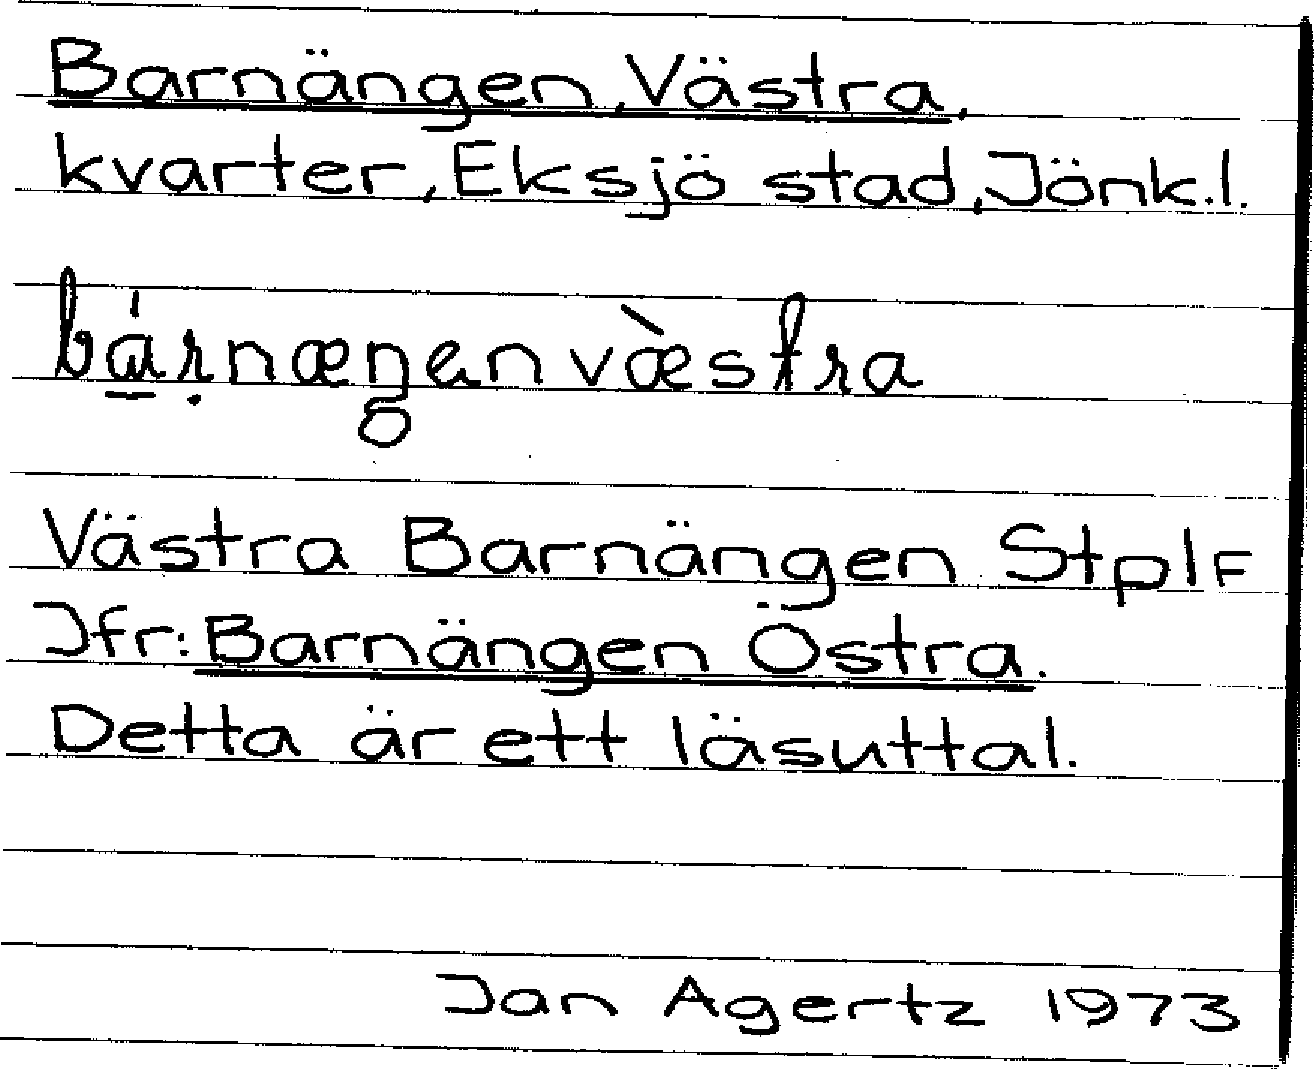 Barnängen, Västra,
kvarter, Eksjö stad, Jönk.l.
bá̱rṇæŋən væ̀stra
Västra Barnängen StplF
Jfr: Barnängen Östra.
Detta är ett läsuttal.
Jan Agertz 1973